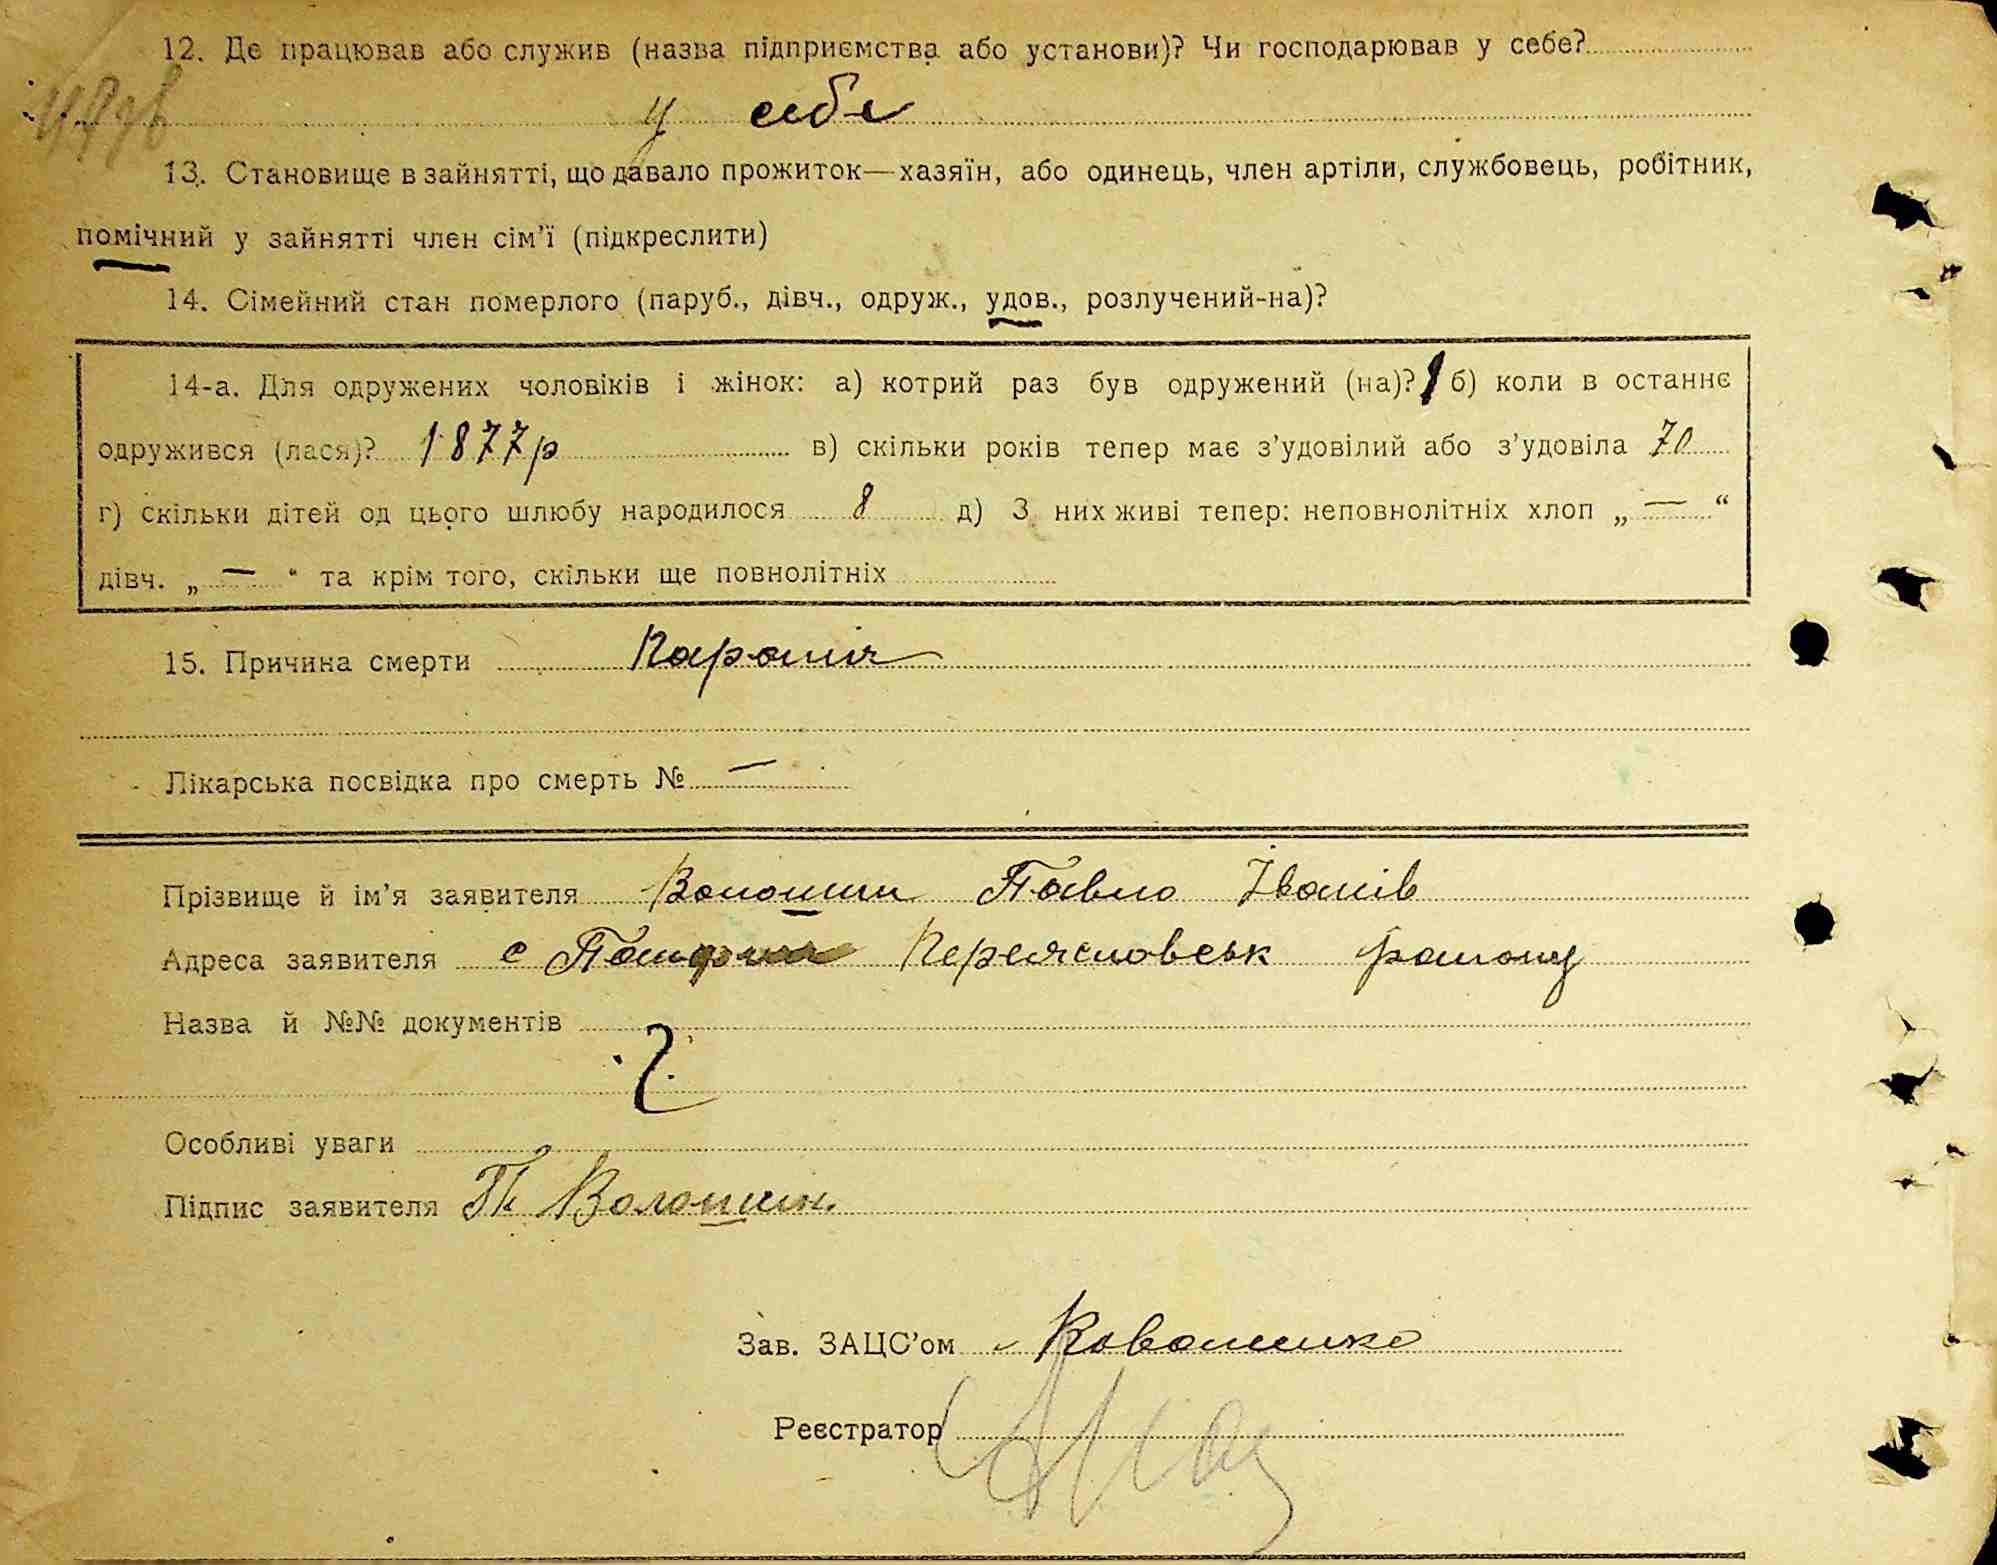 12. Де працював або служив (назва підприємства або установи)? Чи господарював у себе?
у себе
13. Становище в зайнятті, що давало прожиток—хазяїн, або одинець, член артіли, службовець, робітник,
помічний у зайнятті член сім'ї (підкреслити)
14. Сімейний стан померлого (паруб., дівч., одруж., удов., розлучений-на)?
14-а. Для одружених чоловіків і жінок: а) котрий раз був одружений (на)? 1 б) коли в останнє
одружився (лася)? 1877р в) скільки років тепер має з'удовілий або з'удовіла 70
г) скільки дітей од цього шлюбу народилося 8 д) З них живі тепер: неповнолітніх хлоп „ — “
дівч. „ — “ та крім того, скільки ще повнолітніх
15. Причина смерти
Лікарська посвідка про смерть № —
Прізвище й ім'я заявителя Волошин Павло Іванів
Адреса заявителя с Переясловськ району
Назва й №№ документів
Особливі уваги
Підпис заявителя П Волошин.
Зав. ЗАЦС'ом Коваленко
Реєстратор